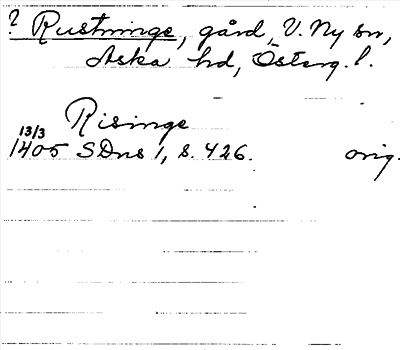 ? Rustninge, gård, V. Ny sn,
Aska hd, Österg. l.
Risinge
13/3
1405 SDns 1, s. 426. orig.